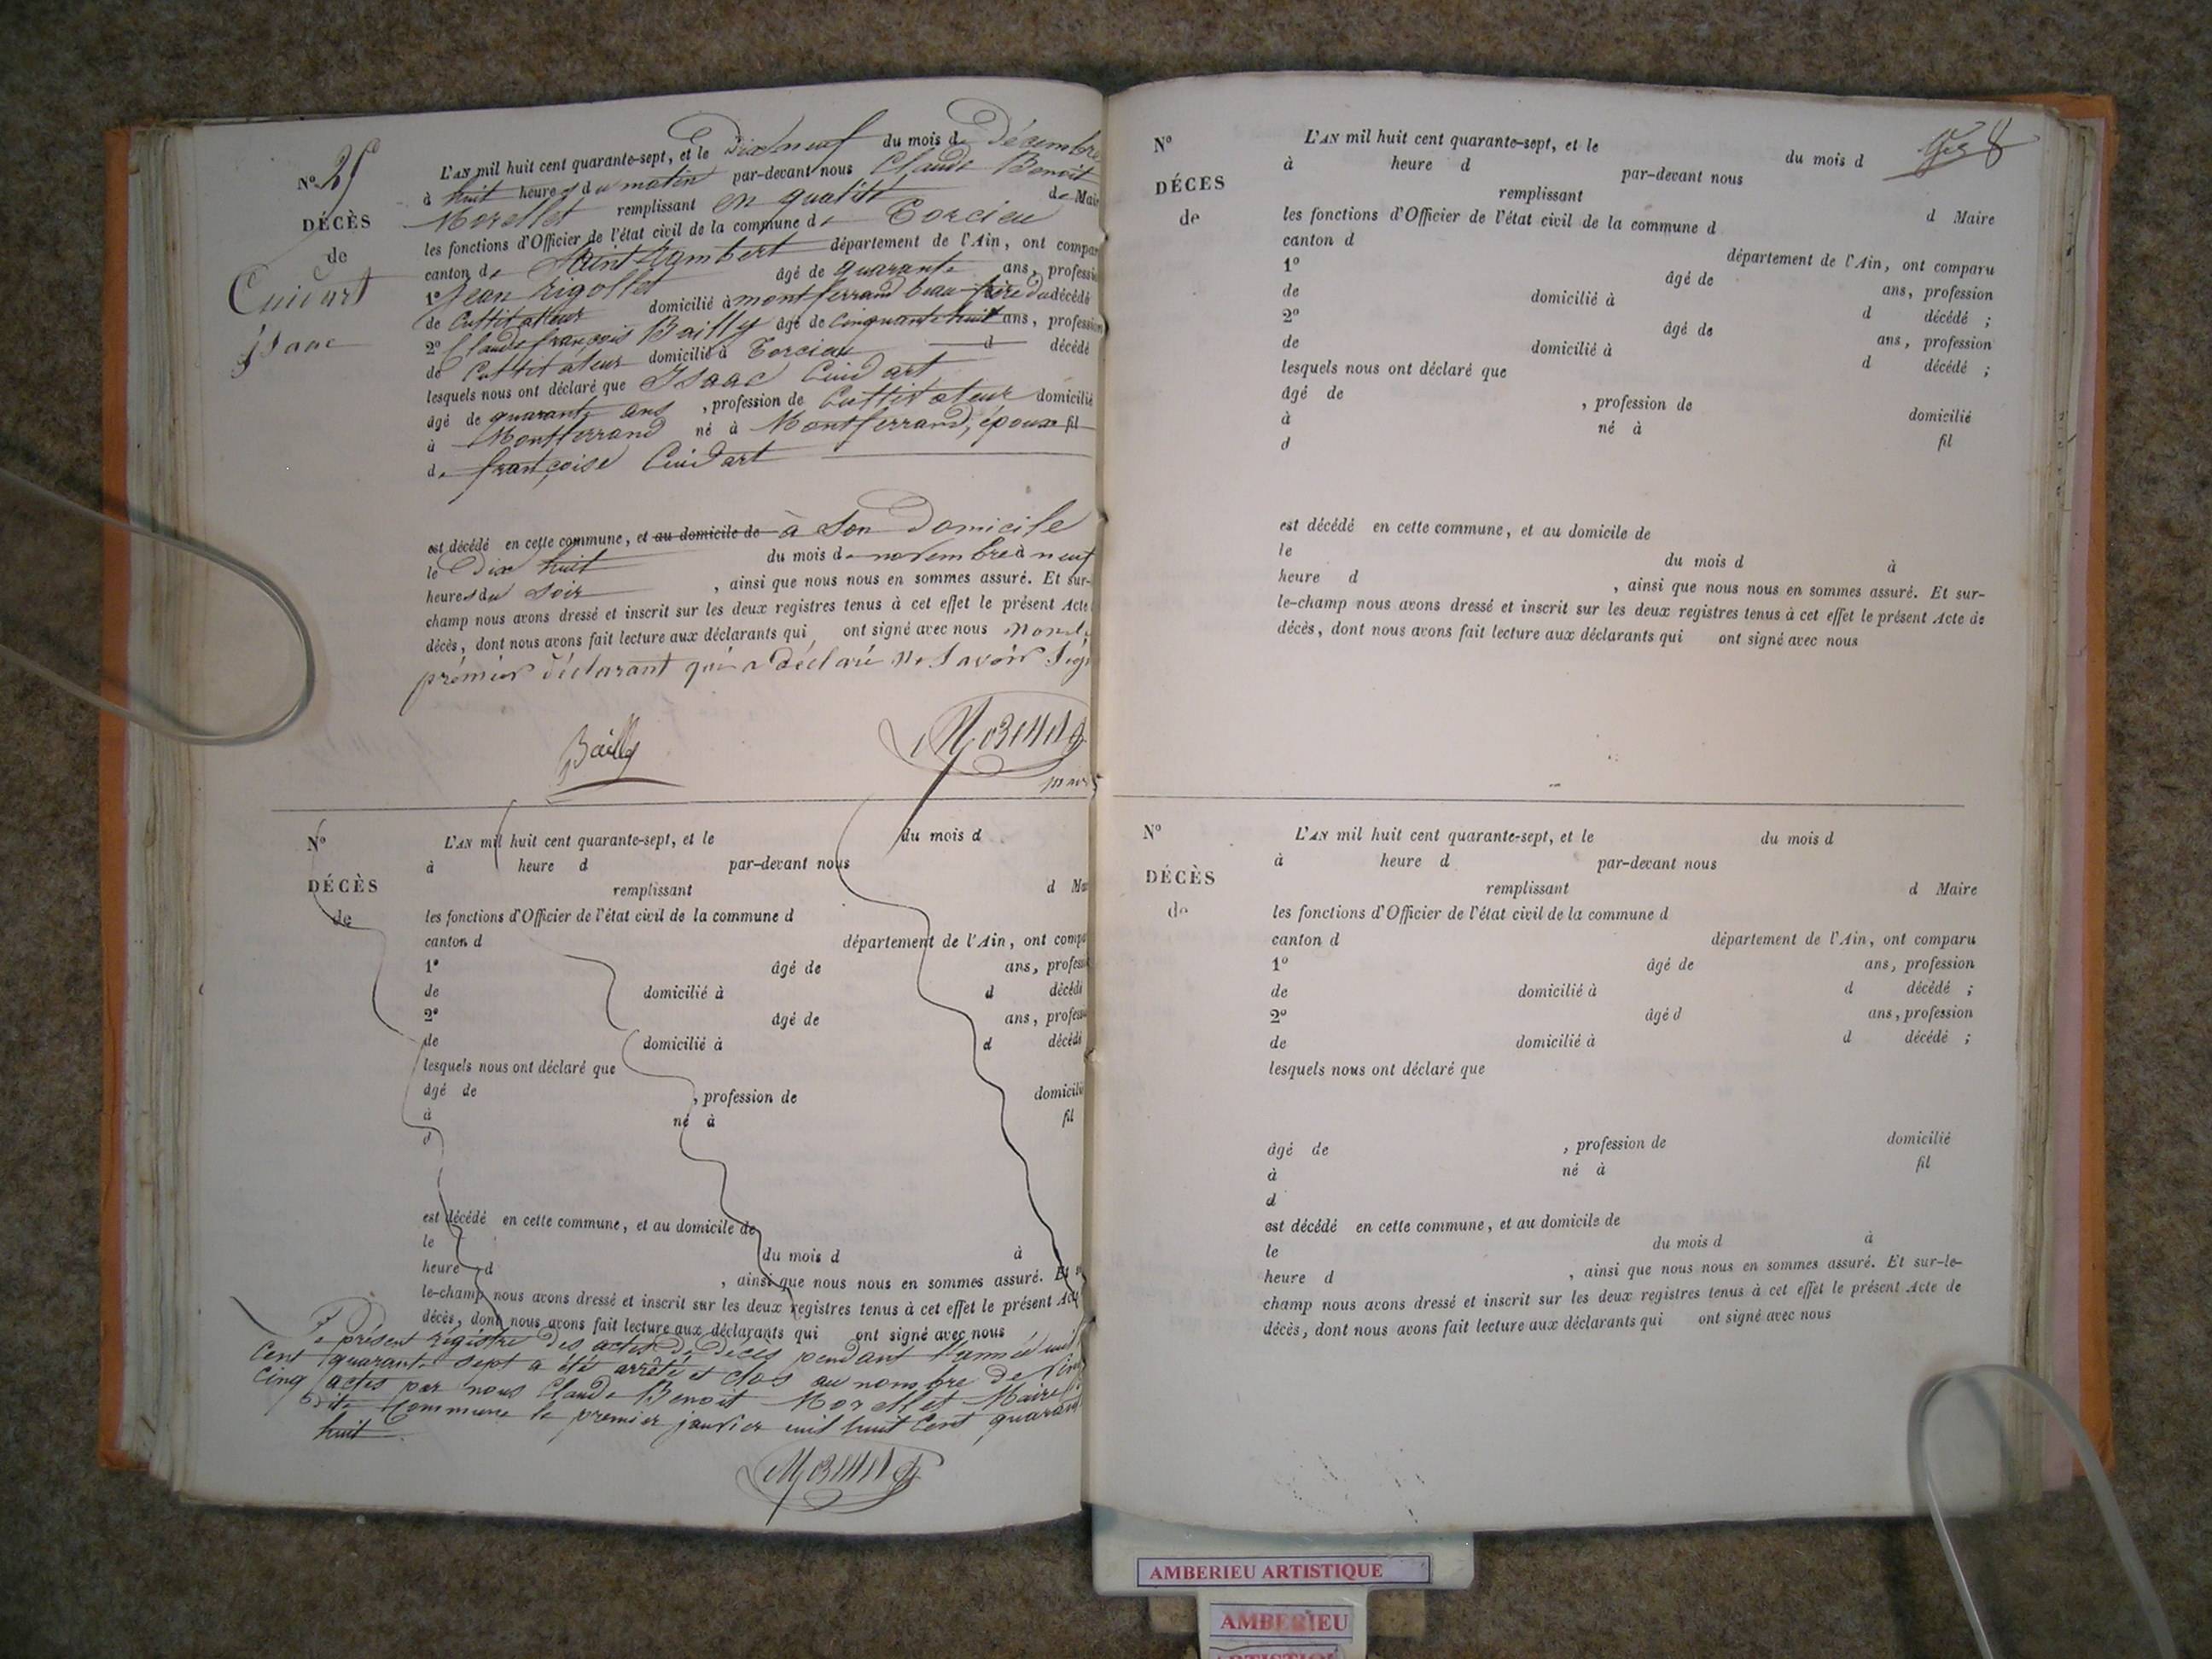 N° 25
DÉCÈS
de
Cuidart
Isaac
L'AN mil huit cent quarante-sept, et le Dix neuf du mois de Décembre
à huit heures du matin par-devant nous Claude Benoit
Morellet remplissant en qualité de Mair
les fonctions d'Officier de l'état civil de la commune de Torcieu
canton de Saint Rambert département de l'Ain, ont compar
1° Jean Rigollet âgé de quarante ans, professi
de Cultivateur domicilié à montferrand beau-frère du décédé
2° Claude françois Bailly âgé de cinquante huit ans, profession
de Cultivateur domicilié à Torcieu d décédé
lesquels nous ont déclaré que Isaac Cuidart
âgé de quarante ans , profession de Cultivateur domicilié
à Montferrand né à Montferrand, époux fil
de françoise Cuidart
est décédé en cette commune, et au domicile de à son Domicile
le Dix huit du mois de novembre à neuf
heures du soir , ainsi que nous nous en sommes assuré. Et sur-
champ nous avons dressé et inscrit sur les deux registres tenus à cet effet le présent Acte
décès, dont nous avons fait lecture aux déclarants qui ont signé avec nous non le
prémier déclarant qui a déclaré ne savoir sig
Bailly
Morellet
N°
DÉCÈS
de
L'AN mil huit cent quarante-sept, et le du mois d
à heure d par-devant nous
remplissant d Ma
les fonctions d'Officier de l'état civil de la commune d
canton d département de l'Ain, ont compa
1° âgé de ans, profess
de domicilié à d décédé
2° âgé de ans, profess
de domicilié à d décédé
lesquels nous ont déclaré que
âgé de , profession de domicilié
à né à fil
d
est décédé en cette commune, et au domicile de
le du mois d à
heure d , ainsi que nous nous en sommes assuré. Et
le-champ nous avons dressé et inscrit sur les deux registres tenus à cet effet le présent Act
décès, dont nous avons fait lecture aux déclarants qui ont signé avec nous
Le présent régistre des actes de Décès pendant l'année mil
Cent quarante sept a été arrêté et clos au nombre de Vin
Cinq actes par nous Claude Benoit Morellet Maire
de commune le premier janvier mil huit Cent quaran
huit
Morellet
N°
DÉCES
de
L'AN mil huit cent quarante-sept, et le du mois d
à heure d par-devant nous
remplissant d Maire
les fonctions d'Officier de l'état civil de la commune d
canton d département de l'Ain, ont comparu
1° âgé de ans, profession
de domicilié à d décédé ;
2° âgé de ans, profession
de domicilié à d décédé ;
lesquels nous ont déclaré que
âgé de , profession de domicilié
à né à fil
d
est décédé en cette commune, et au domicile de
le du mois d à
heure d , ainsi que nous nous en sommes assuré. Et sur-
le-champ nous avons dressé et inscrit sur les deux registres tenus à cet effet le présent Acte de
décès, dont nous avons fait lecture aux déclarants qui ont signé avec nous
N°
DÉCÈS
de
L'AN mil huit cent quarante-sept, et le du mois d
à heure d par-devant nous
remplissant d Maire
les fonctions d'Officier de l'état civil de la commune d
canton d département de l'Ain, ont comparu
1° âgé de ans, profession
de domicilié à d décédé ;
2° âgé d ans, profession
de domicilié à d décédé ;
lesquels nous ont déclaré que
âgé de , profession de domicilié
à né à fil
d
est décédé en cette commune, et au domicile de
le du mois d à
heure d , ainsi que nous nous en sommes assuré. Et sur-le-
champ nous avons dressé et inscrit sur les deux registres tenus à cet effet le présent Acte de
décès, dont nous avons fait lecture aux déclarants qui ont signé avec nous
AMBERIEU ARTISTIQUE
AMBERIEU
ARTISTIQUE